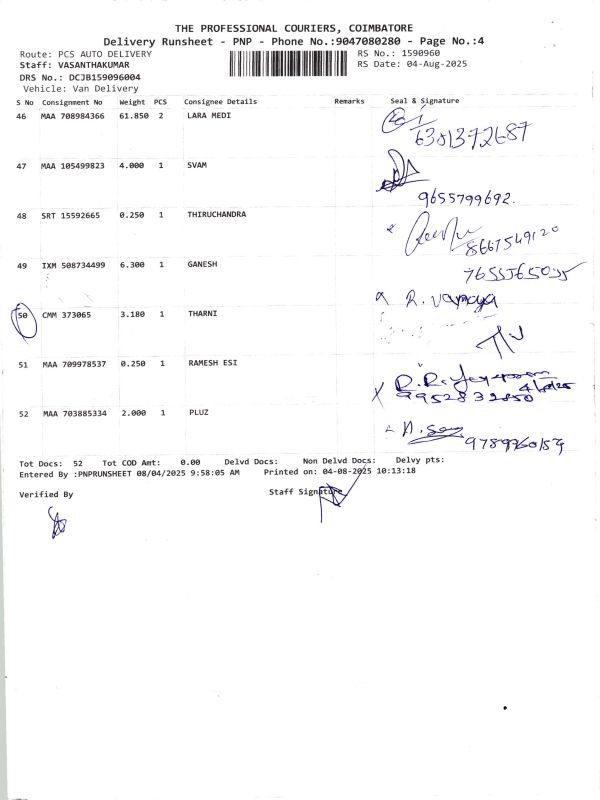 THE PROFESSIONAL COURIERS, COIMBATORE
Delivery Runsheet - PNP - Phone No.:9047080280 - Page No.:4
Route: PCS AUTO DELIVERY RS No.: 1590960
Staff: VASANTHAKUMAR RS Date: 04-Aug-2025
DRS No.: DCJB159096004
Vehicle: Van Delivery
S No Consignment No Weight PCS Consignee Details Remarks Seal & Signature
46 MAA 708984366 61.850 2 LARA MEDI
6381372687
47 MAA 105499823 4.000 1 SVAM
9655799692.
48 SRT 15592665 0.250 1 THIRUCHANDRA
8667549120
49 IXM 508734499 6.300 1 GANESH
R.
50 CMM 373065 3.180 1 THARNI
51 MAA 709978537 0.250 1 RAMESH ESI
9952832850
52 MAA 703885334 2.000 1 PLUZ
Tot Docs: 52 Tot COD Amt: 0.00 Delvd Docs: Non Delvd Docs: Delvy pts:
Entered By :PNPRUNSHEET 08/04/2025 9:58:05 AM Printed on: 04-08-2025 10:13:18
Verified By Staff Signature